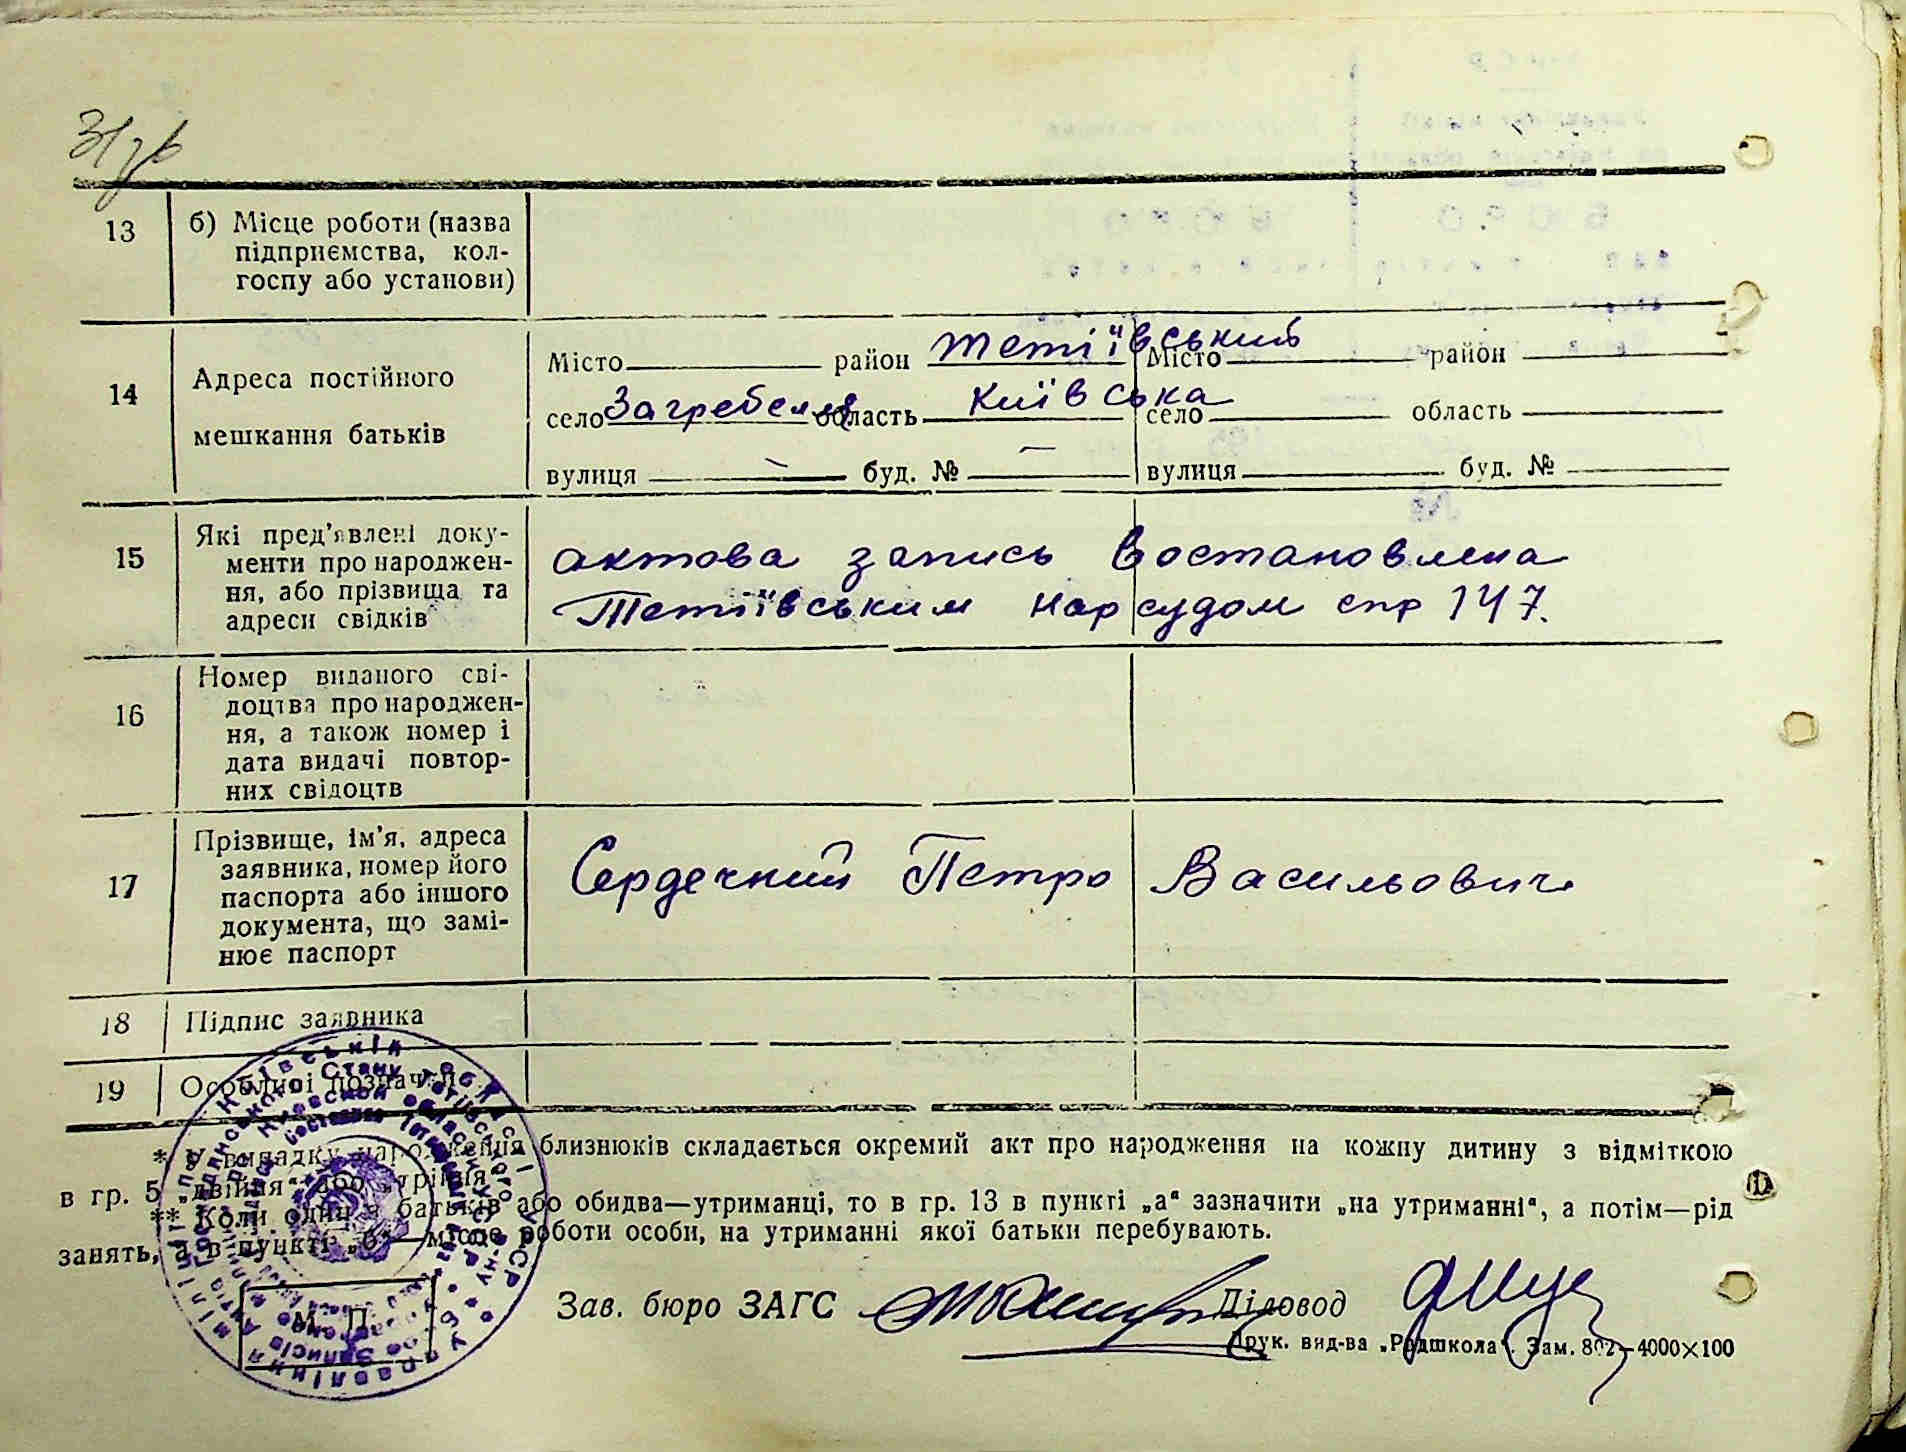 31зв
13 б) Місце роботи (назва
підприємства, кол-
госпу або установи)
14 Адреса постійного
мешкання батьків
Місто район Тетіївський Місто район
село Загребелля область Київська село область
вулиця — буд. № — вулиця буд. №
15 Які пред'явлені доку-
менти про народжен-
ня, або прізвища та
адреси свідків
актова запись востановлена
Тетіївським нарсудом спр 147.
16 Номер виданого сві-
доцтва про народжен-
ня, а також номер і
дата видачі повтор-
них свідоцтв
17 Прізвище, ім'я, адреса
заявника, номер його
паспорта або іншого
документа, що замі-
нює паспорт
Сердечний Петро Васильович
18 Підпис заявника
19 Особливі позначки
* У випадку народження близнюків складається окремий акт про народження на кожну дитину з відміткою
в гр. 5 „двійня“ або „трійня“.
** Коли один з батьків або обидва—утриманці, то в гр. 13 в пункті „а“ зазначити „на утриманні“, а потім—рід
занять, а в пункті „б“—місце роботи особи, на утриманні якої батьки перебувають.
М. П.
Зав. бюро ЗАГС Діловод
Друк. вид-ва „Радшкола“. Зам. 802—4000×100